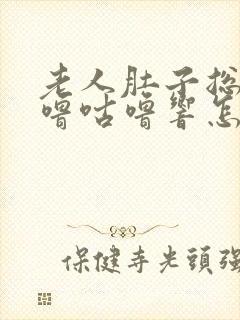 老人肚子总
噜咕噜响怎
保健寺光頭强